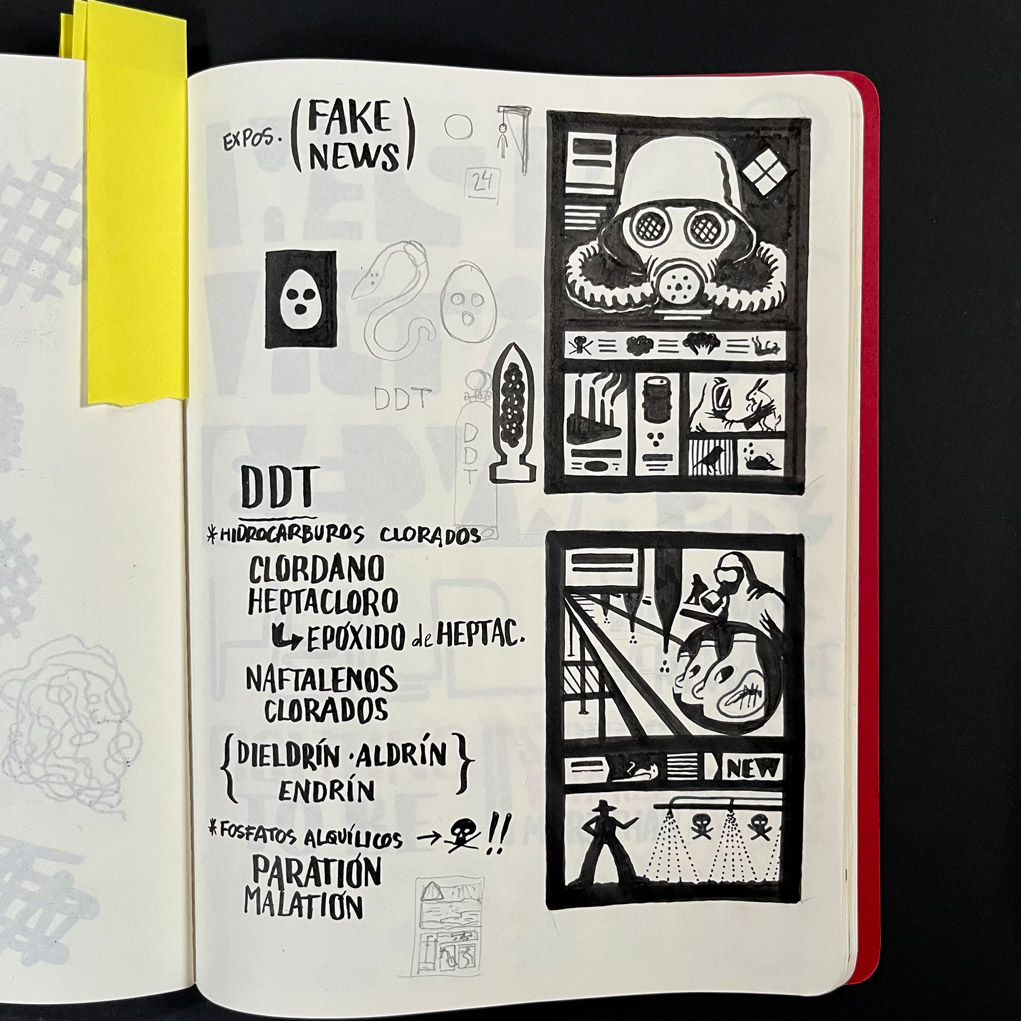 EXPOS. (FAKE
NEWS)
24
DDT
D
D
T
DDT
*HIDROCARBUROS CLORADOS
CLORDANO
HEPTACLORO
↳ EPÓXIDO de HEPTAC.
NAFTALENOS
CLORADOS
{DIELDRÍN · ALDRÍN
ENDRÍN}
*FOSFATOS ALQUÍLICOS → !!
PARATIÓN
MALATIÓN
NEW